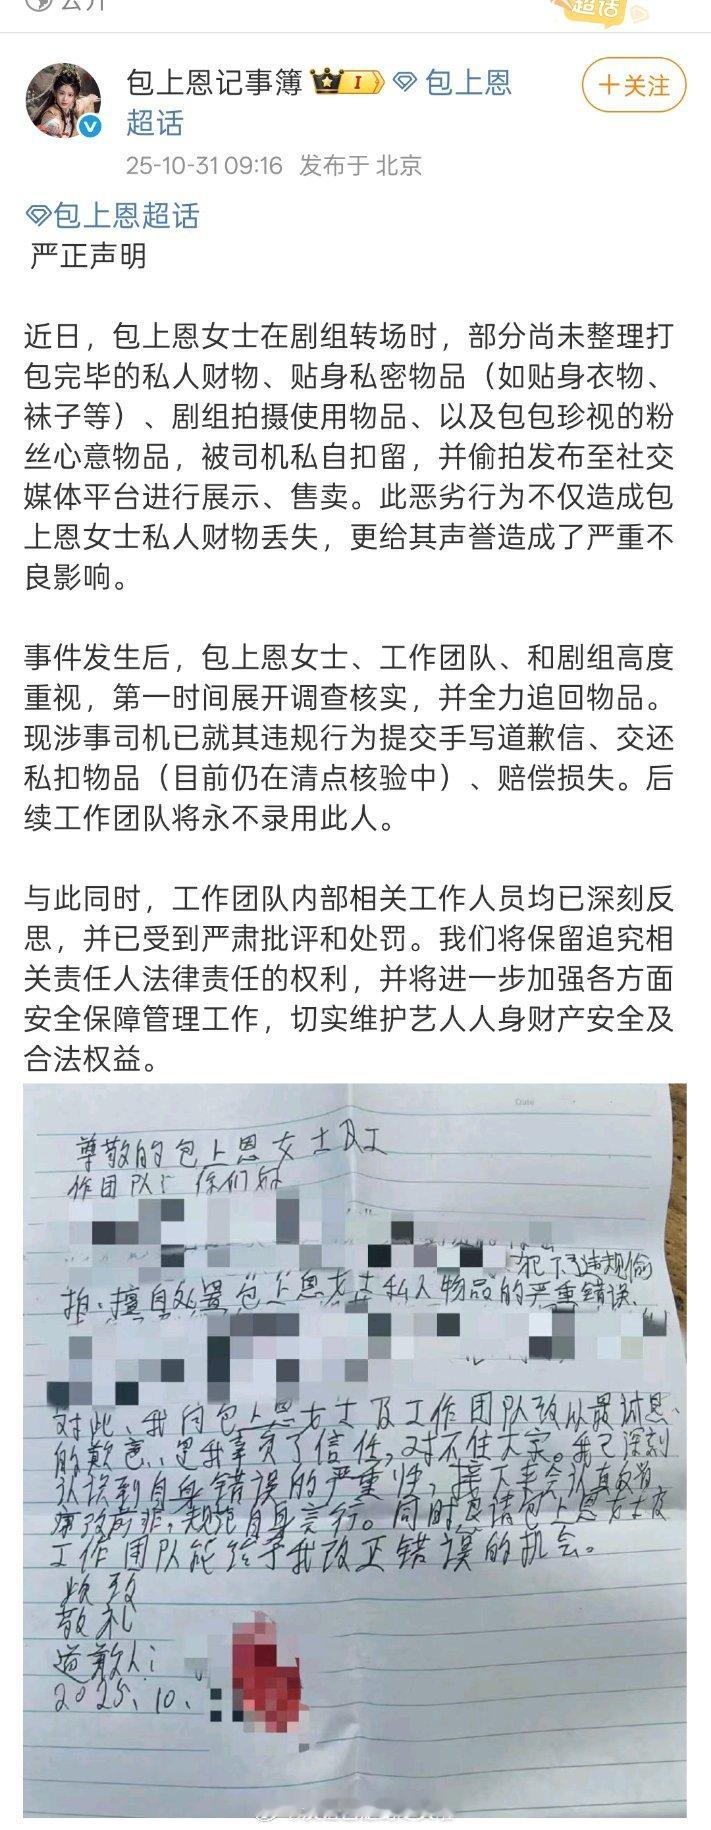 超话
包上恩记事簿 I 包上恩
超话
+关注
25-10-31 09:16 发布于 北京
包上恩超话
严正声明
近日，包上恩女士在剧组转场时，部分尚未整理打
包完毕的私人财物、贴身私密物品（如贴身衣物、
袜子等）、剧组拍摄使用物品、以及包包珍视的粉
丝心意物品，被司机私自扣留，并偷拍发布至社交
媒体平台进行展示、售卖。此恶劣行为不仅造成包
上恩女士私人财物丢失，更给其声誉造成了严重不
良影响。
事件发生后，包上恩女士、工作团队、和剧组高度
重视，第一时间展开调查核实，并全力追回物品。
现涉事司机已就其违规行为提交手写道歉信、交还
私扣物品（目前仍在清点核验中）、赔偿损失。后
续工作团队将永不录用此人。
与此同时，工作团队内部相关工作人员均已深刻反
思，并已受到严肃批评和处罚。我们将保留追究相
关责任人法律责任的权利，并将进一步加强各方面
安全保障管理工作，切实维护艺人人身财产安全及
合法权益。
Date
尊敬的包上恩女士及工
作团队：你们好
犯下了违规偷
拍、擅自处置包上恩女士私人物品的严重错误、
对此、我向包上恩女士及工作团队致以最诚恳
的歉意、是我辜负了信任，对不住大家。我已深刻
认识到自身错误的严重性，接下来会认真反省
痛改前非，规范自身言行。同时恳请包上恩女士及
工作团队能给予我改正错误的机会。
此致
敬礼
道歉人：
2025、10、